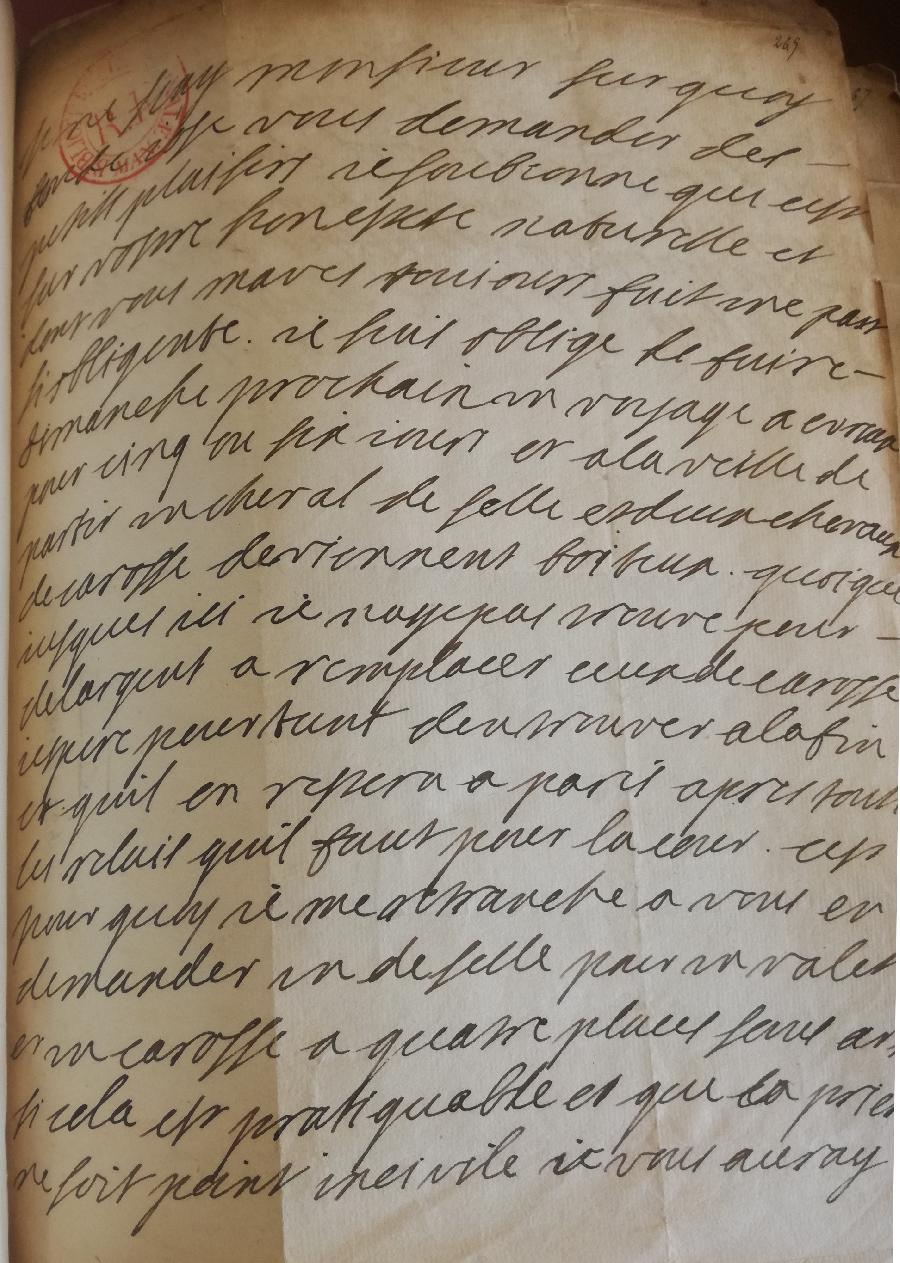 269
je ne scay monsieur sur quoy
vous demander des
petits plaisirs ie soubconne que cest
sur vostre honestete naturelle et
dont vous maves tousiours fait une part
si obligente. ie suis oblige de faire
dimanche prochain un voyage a evreux
pour cinq ou six iours et a la veille de
partir un cheval de selle et deux chevaux
de carosse deviennent boiteux. quoique
iusques ici ie naye pas trouve pour
de largent a remplacer ceux de carosse
iespere pourtant den trouver a la fin
et quil en restera a paris apres tous
les relais quil faut pour la cour. cest
pour quoy ie me retranche a vous en
demander un de selle pour un valet
et un carosse a quatre places sans
si cela est pratiquable et que la priere
ne soit point incivile ie vous auray